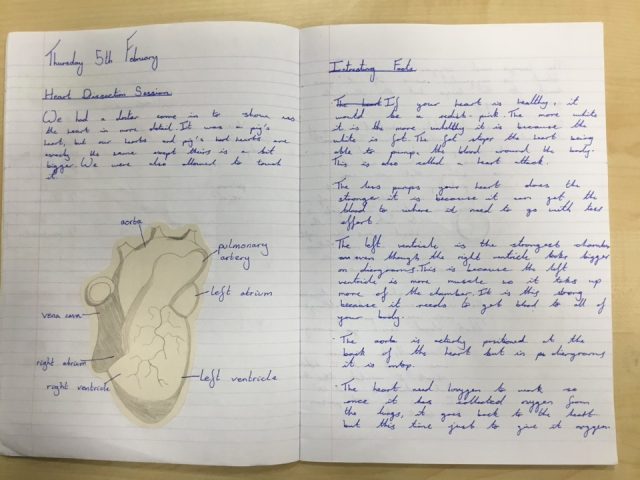 Thursday 5th Febuary
Heart Dissection Session
We had a doctor come in to show us
the heart in more detail. It was a pig's
heart, but our hearts and pig's hearts are
exactly the same except theirs is a bit
bigger. We were also allowed to touch
it.
aorta
pulmonary
artery
left atrium
vena cava
right atrium
right ventricle
left ventricle
Intresting Facts
If your heart is healthy, it
would be a redish-pink. The more white
it is the more unhelthy it is because the
white is fat. The fat stops the heart being
able to pump the blood around the body.
This is also called a heart attack.
The less pumps your heart does the
stronger it is because it can get the
blood to where it need to go with less
effort.
The left ventricle is the strongest chamber
even though the right ventricle looks bigger
on diagrams. This is because the left
ventricle is more muscle so it takes up
more of the chamber. It is this strong
because it needs to get blood to all of
your body.
· The aorta is actualy positioned at the
back of the heart but in diagrams
it is ontop.
· The heart need to work so
once it has collected oxygen from
the lungs, it goes back to the heart
but this time just to give it oxygen.